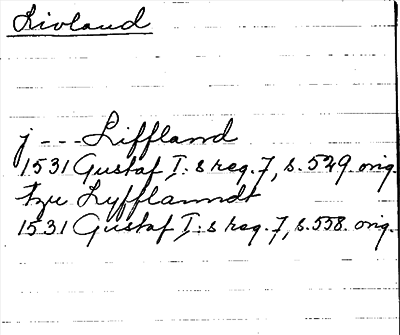 Livland
j --- Liffland
1531 Gustaf I:s reg. 7, s. 529 orig.
tzu Lyfflanndt
1531 Gustaf I:s reg. 7, s. 558. orig.